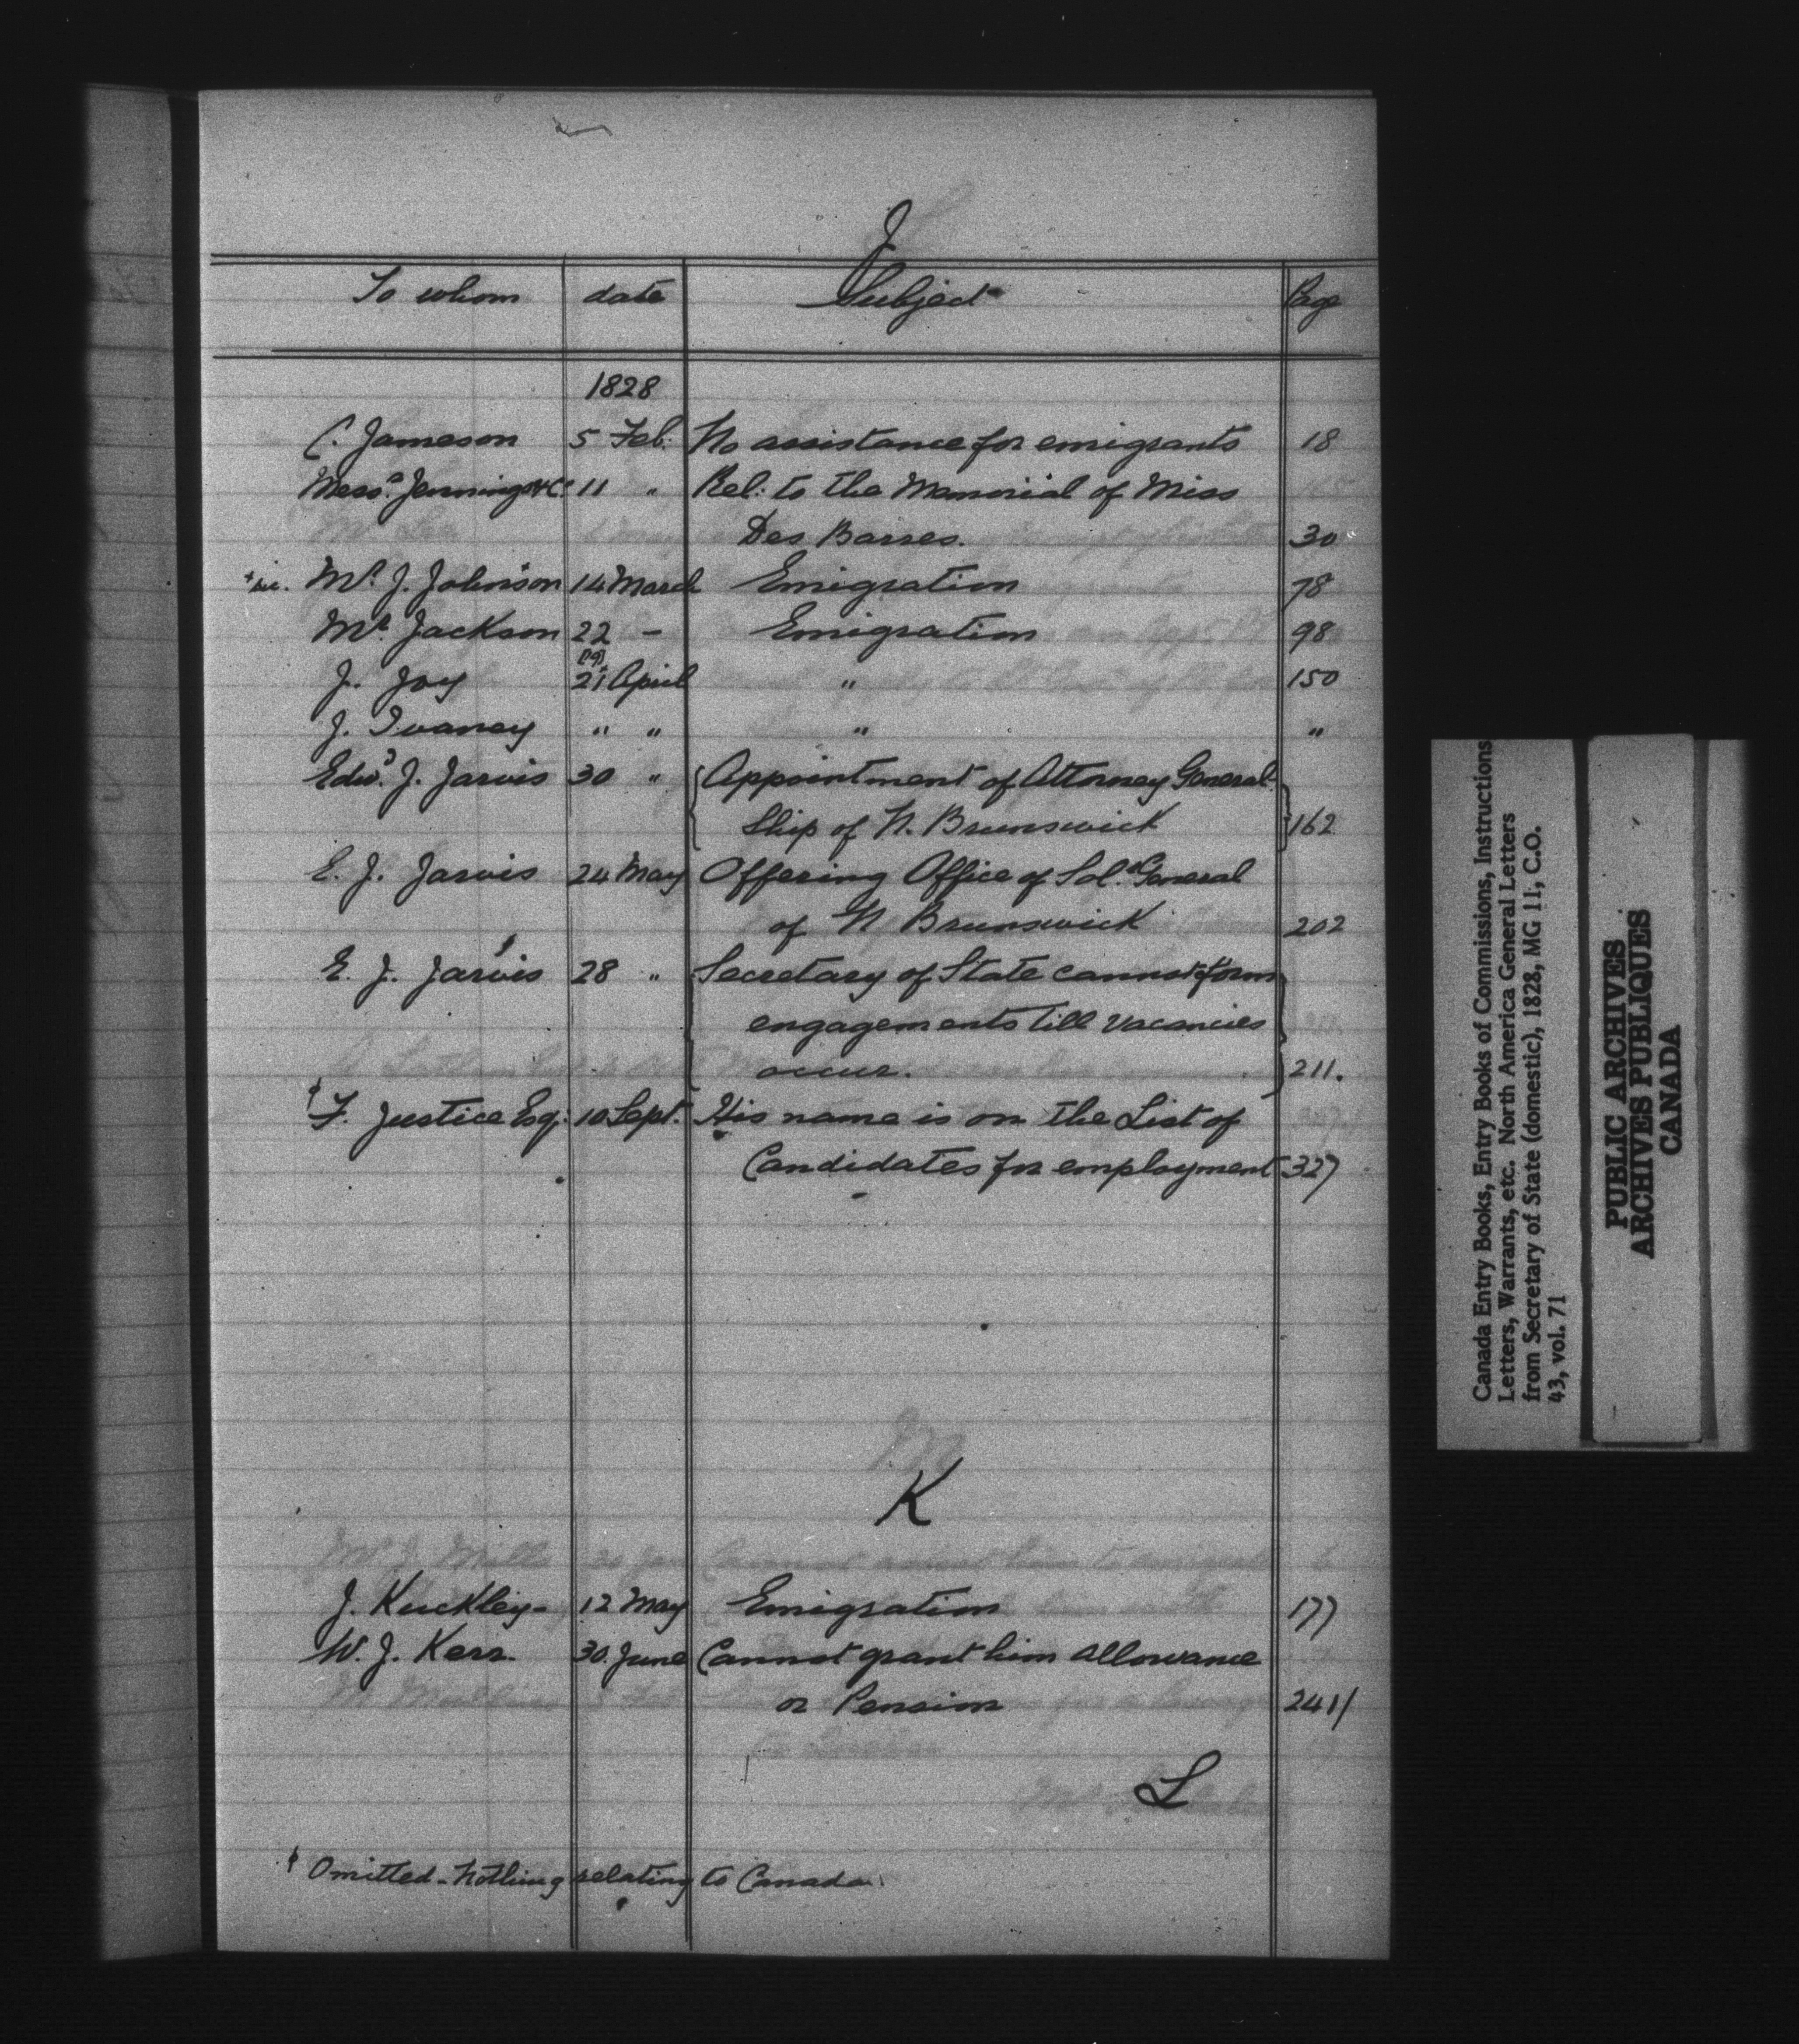 J
To whom date Subject Page
1828
C. Jameson 5 Feb. No assistance for emigrants 18
Messrs. Jennings & Co. 11 " Rel: to the Memorial of Miss
Des Barres. 30
Mr. J. Johnson 14 March Emigration 78
Mr. Jackson 22 - Emigration 98
(19)
J. Joy 21 April " 150
J. Ivaney " " " "
Edwd. J. Jarvis 30 " Appointment of Attorney General-
Ship of N. Brunswick 162
E. J. Jarvis 24 May Offering Office of Solr. General
of N Brunswick 202
E. J. Jarvis 28 " Secretary of State cannot form
engagements till vacancies
occur. 211.
F. Justice Esq. 10 Sept. His name is on the List of
Candidates for employment 327
K
J. Kuckley - 12 May Emigration 177
W. J. Kerr. 30. June Cannot grant him allowance
or Pension 241/
L
Omitted - Nothing relating to Canada.
Canada Entry Books, Entry Books of Commissions, Instructions
Letters, Warrants, etc. North America General Letters
from Secretary of State (domestic), 1828, MG 11, C.O.
43, vol. 71
PUBLIC ARCHIVES
ARCHIVES PUBLIQUES
CANADA